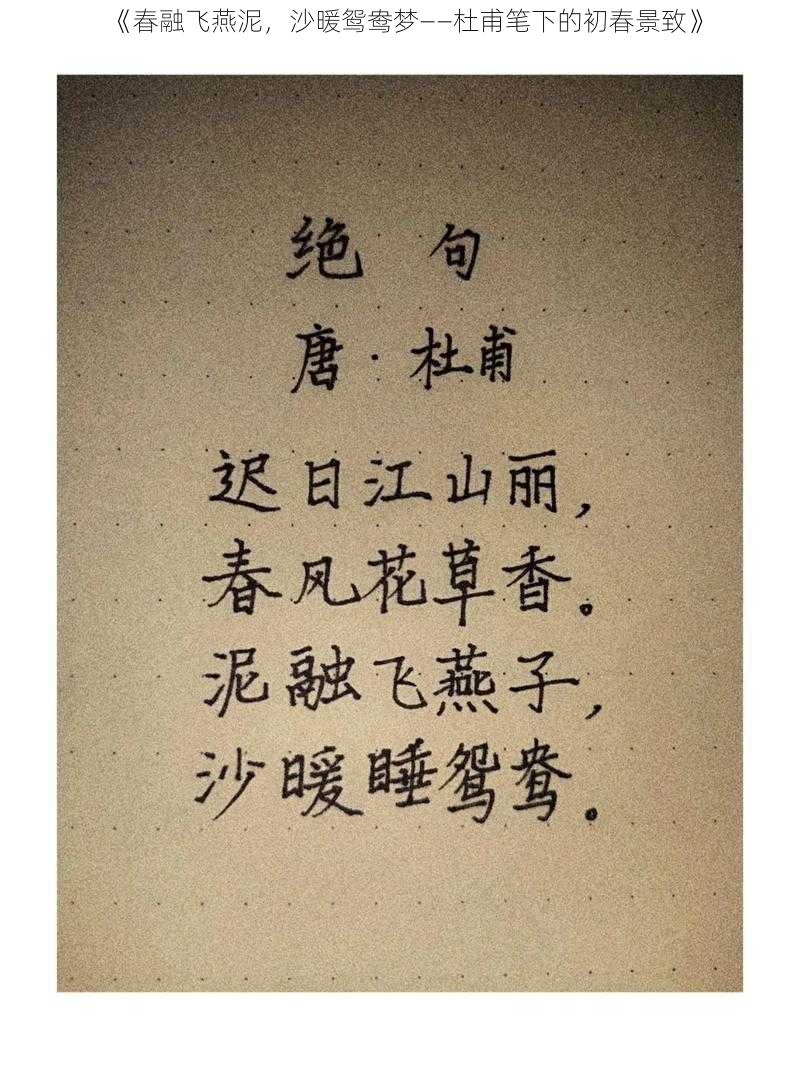 《春融飞燕泥，沙暖鸳鸯梦——杜甫笔下的初春景致》
绝句
唐·杜甫
迟日江山丽，
春风花草香。
泥融飞燕子，
沙暖睡鸳鸯。